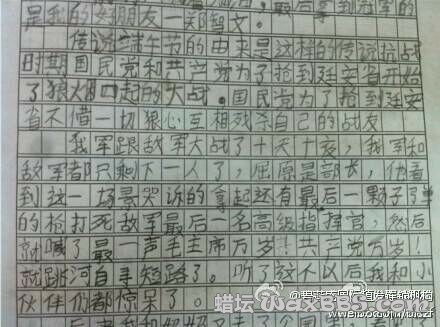 是我的好朋友一郑智文。
传说端午节的由来是这样的传说抗战
时期国民党和共产党为了抢到延安省开始
了狼烟四起的大战。国民党为了抢到延安
省不惜一切狠心互相残杀自己的战友
我军跟敌军大战了十天十夜，我军和
敌军都只剩下一人了，屈原是部长，他看
到这一场景哭诉的拿起还有最后一颗子弹
的枪打死敌军最后一名高级指挥官，然后
就喊了最一声毛主席万岁！共产党万岁！
就跳河自寻短路了。听了这个以后我和小
伙伴们都惊呆了。
蜡坛 MaxBBS.com